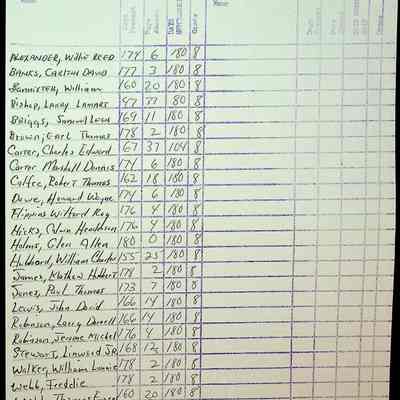 Name
Days Present
Days Absent
DAYS MEMBERSHIP
Grade
Name
Days Present
Days Absent
Grade
ALEXANDER, Willie REED 174 6 180 8
BANKS, CARLTON DAVID 177 3 180 8
Bannister, William 160 20 180 8
Bishop, Larry Lamart 47 33 80 8
BRIGGS, Samuel Leon 169 11 180 8
Brown, Earl Thomas 178 2 180 8
Carter, Charles Edward 67 37 104 8
Carter Marshall Dennis 174 6 180 8
Coffee, Robert Thomas 162 18 180 8
Dowe, Howard Wayne 174 6 180 8
Flippins Wilford Ray 176 4 180 8
Hicks, Calvin Henderson 176 4 180 8
Holms, Glen Allen 180 0 180 8
Hubbard, William Charles 155 25 180 8
James, Mathew Hubbert 178 2 180 8
Jones, Paul Thomas 173 7 180 8
Lewis, John David 166 14 180 8
Robinson, Larry Darnell 166 14 180 8
Robinson, Jerome Michel 176 4 180 8
Stewart, Linwood JR 168 12 180 8
Walker, William Lonnie 178 2 180 8
Webb, Freddie 178 2 180 8
160 20 180 8